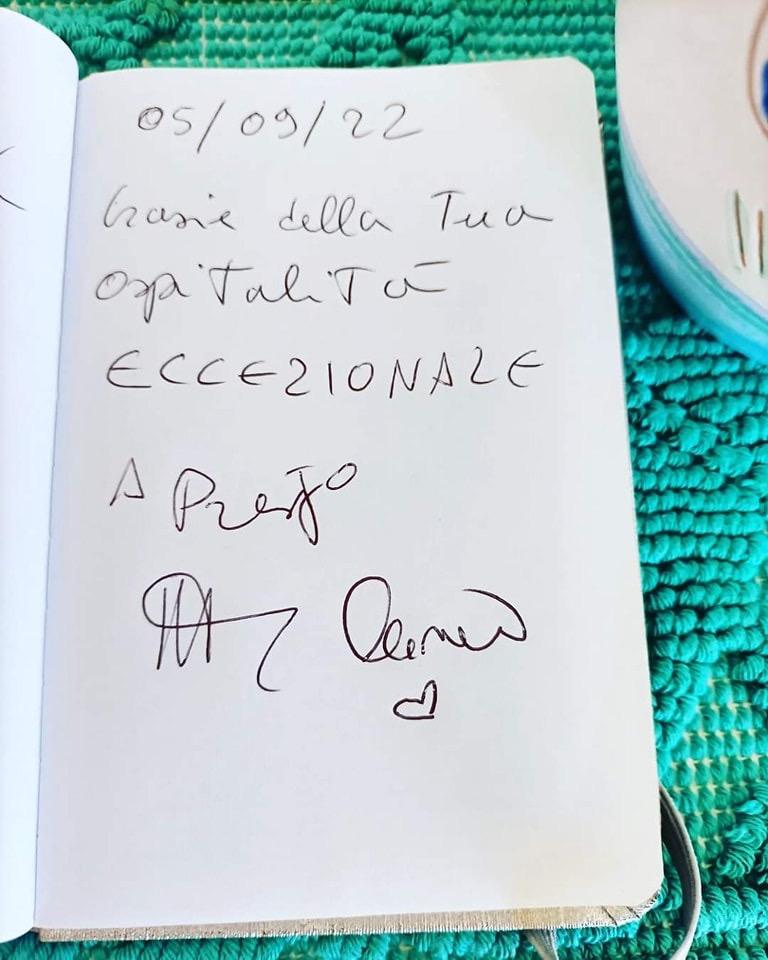 05/09/22
Grazie della Tua
ospitalità
ECCEZIONALE
A Presto